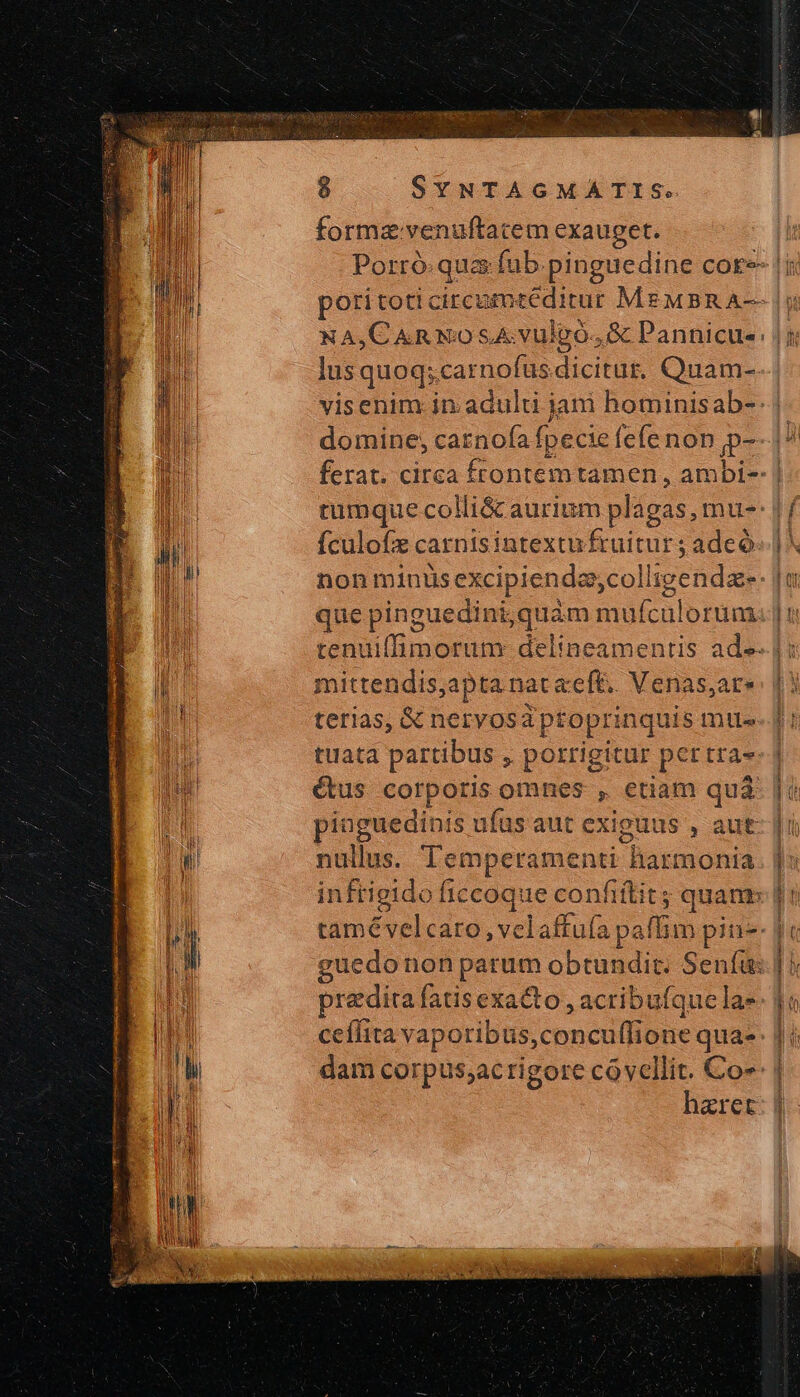 8 SYNTAGMATIS.
formæ venuſtatem exauget.
Porrò quæ ſub pinguedine cor-
pori toti circumtéditur MEMBRA-
NA, CARNOSA vulgò, & Pannicu-
lus quoq; carnoſus dicitur. Quam-
vis enim in adulti jam hominis ab-
domine, carnoſa ſpecie ſeſe non p-
ferat. circa frontem tamen, ambi-
tumque colli & aurium plagas, mu-
ſculoſæ carnis intextu fruitur; adeò
non minùs excipiendæ, colligendæ-
que pinguedini, quàm muſculorum
tenuiſſimorum delineamentis ad-
mittendis, apta nata eſt. Venas, ar-
terias, & nervos à proprinquis mu-
tuata partibus, porrigitur per tra-
ctus corporis omnes, etiam quâ
pinguedinis uſus aut exiguus, aut
nullus. Temperamenti harmonia
in frigido ſiccoque conſiſtit; quam
tamé vel caro, vel affuſa paſſim pin-
guedo non parum obtundit. Senſu
prædita ſatis exacto, acribuſque la-
ceſſita vaporibus, concuſſione qua-
dam corpus, ac rigore cóvellit. Co-
hæret